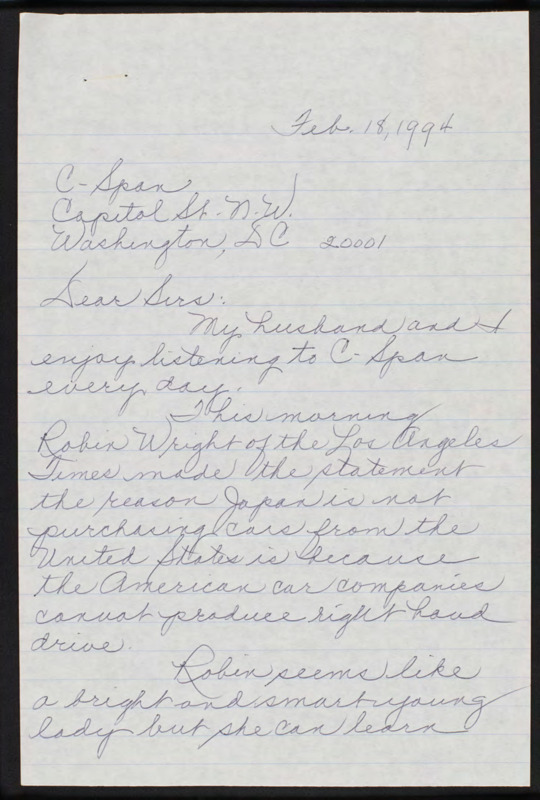 Feb. 18, 1994
C-Span
Capitol St. N.W.
Washington, DC 20001
Dear Sirs:
My husband and I
enjoy listening to C-Span
every day.
This morning
Robin Wright of the Los Angeles
Times made the statement
the reason Japan is not
purchasing cars from the
United States is because
the American car companies
cannot produce right hand
drive.
Robin seems like
a bright and smart young
lady but she can learn